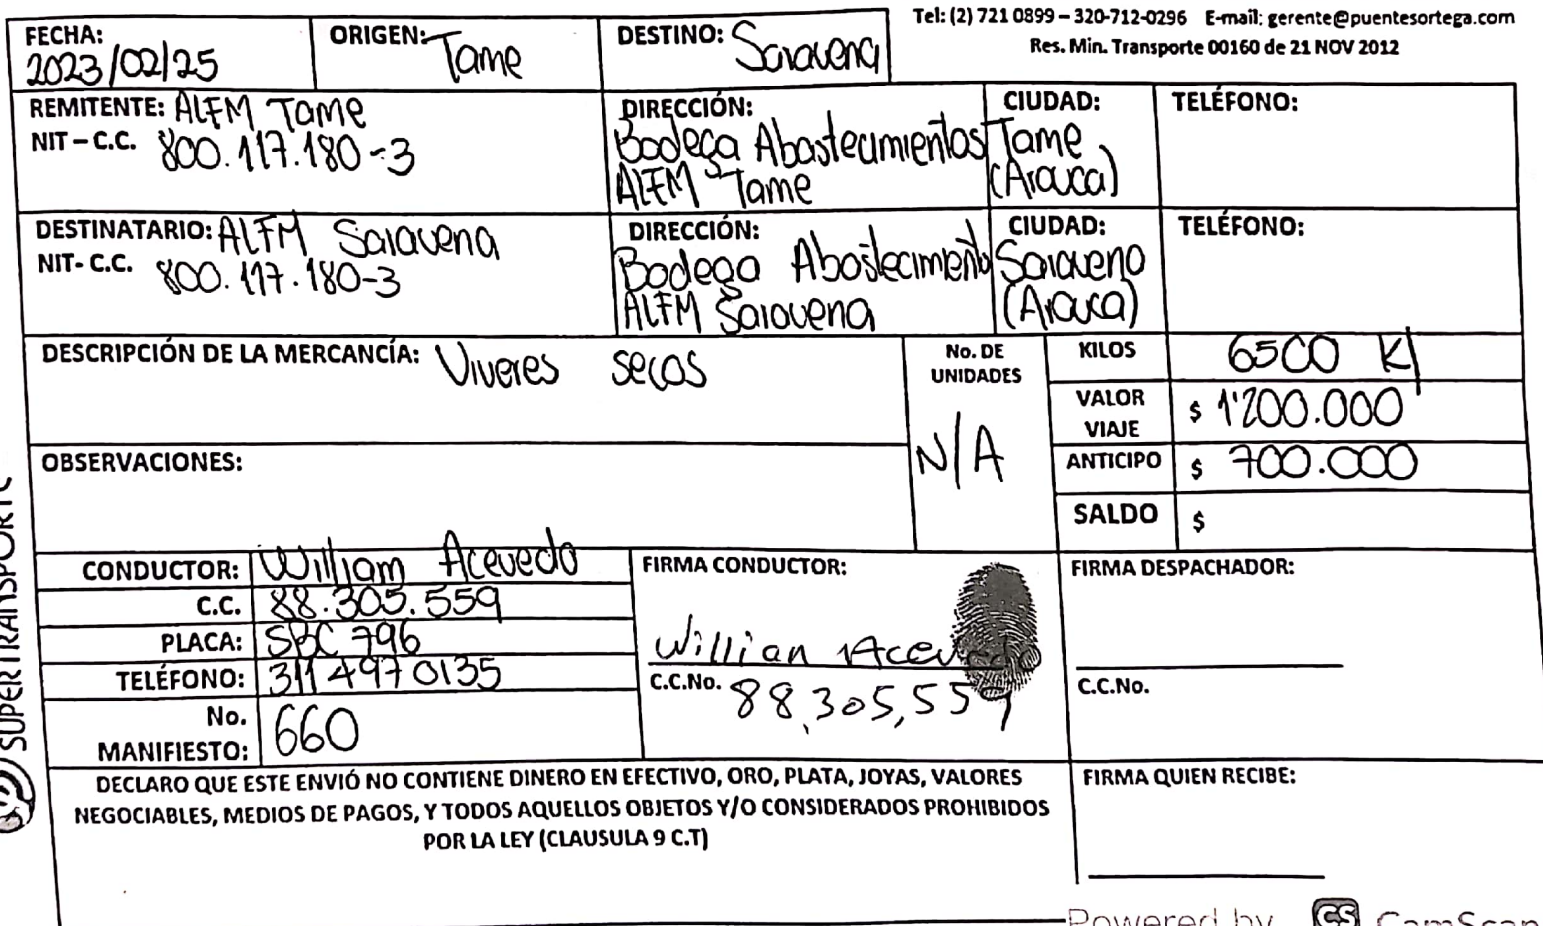 Tel: (2) 721 0899 – 320-712-0296 E-mail: gerente@puentesortega.com
Res. Min. Transporte 00160 de 21 NOV 2012
FECHA: 2023/02/25
ORIGEN: Tame
DESTINO: Saravena
REMITENTE: ALFM Tame
NIT – C.C. 800.117.180-3
DIRECCIÓN:
Bodega Abastecimientos
ALFM Tame
CIUDAD:
Tame
(Arauca)
TELÉFONO:
DESTINATARIO: ALFM Saravena
NIT- C.C. 800.117.180-3
DIRECCIÓN:
Bodega Abastecimiento
ALFM Saravena
CIUDAD:
Saravena
(Arauca)
TELÉFONO:
DESCRIPCIÓN DE LA MERCANCÍA: Viveres secos
No. DE
UNIDADES
N/A
KILOS 6500 K
VALOR
VIAJE $ 1'200.000
ANTICIPO $ 700.000
SALDO $
OBSERVACIONES:
CONDUCTOR: William Acevedo
C.C. 88.305.559
PLACA: SBC 796
TELÉFONO: 311 497 0135
No.
MANIFIESTO: 660
FIRMA CONDUCTOR:
Willian Acevedo
C.C.No. 88,305,559
FIRMA DESPACHADOR:
C.C.No.
DECLARO QUE ESTE ENVIÓ NO CONTIENE DINERO EN EFECTIVO, ORO, PLATA, JOYAS, VALORES
NEGOCIABLES, MEDIOS DE PAGOS, Y TODOS AQUELLOS OBJETOS Y/O CONSIDERADOS PROHIBIDOS
POR LA LEY (CLAUSULA 9 C.T)
FIRMA QUIEN RECIBE:
SUPERTRANSPORTE
Powered by CS CamScan